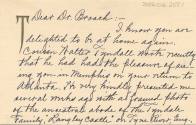 Dear Dr. Broach:—
I know you are
delighted to be at home again.
Cousin Walter Tyndall wrote recently
that he had had the pleasure of see-
ing you in Memphis on your return to
Atlanta. He very kindly presented me
several weeks ago with a framed photo
of the ancestral abode of the Tyndale
Family, "Langley Castle" on Tyne River, Eng-